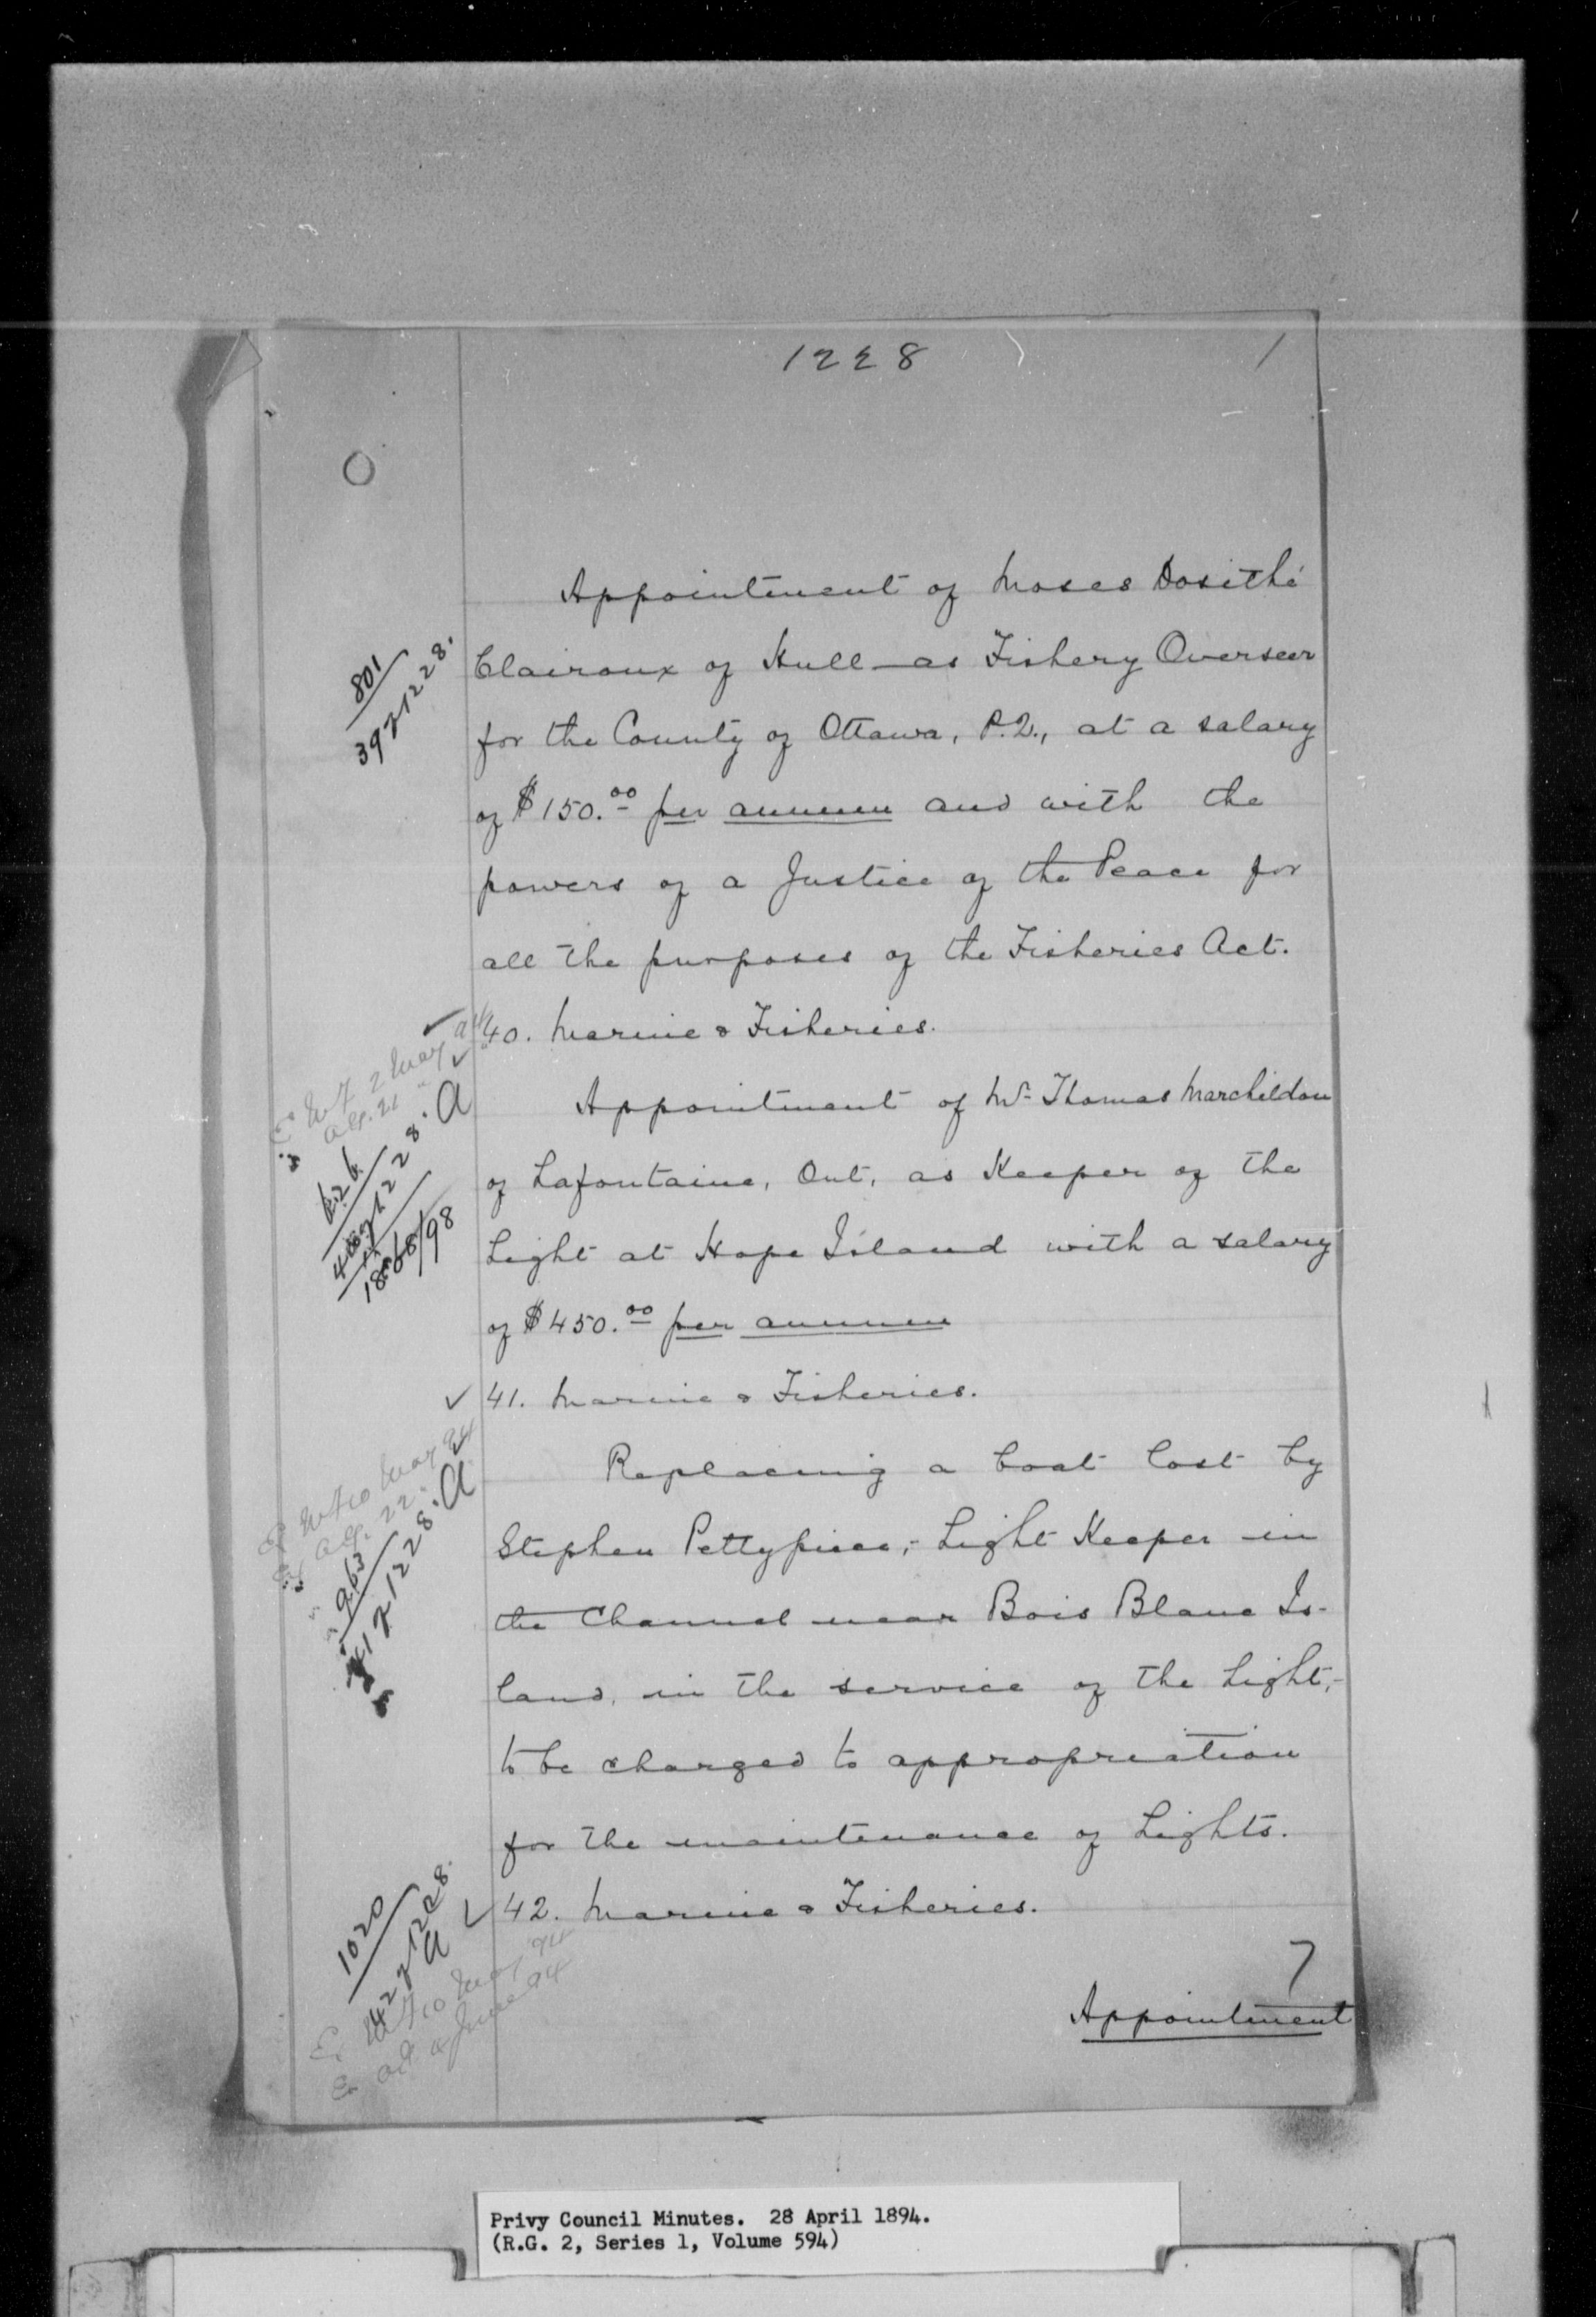 1228
Appointment of Moses Dosithé
Clairoux of Hull as Fishery Overseer
for the County of Ottawa, P.Q., at a salary
of $150.00 per annum and with the
powers of a Justice of the Peace for
all the purposes of the Fisheries Act.
40. Marine & Fisheries.
Appointment of Mr Thomas Marchildon
of Lafontaine, Ont, as Keeper of the
Light at Hope Island with a salary
of $450.00 per annum
41. Marine & Fisheries.
Replacing a boat lost by
Stephen Pettypiece,- Light Keeper in
the Channel near Bois Blanc Is-
land, in the service of the Light,-
to be charged to appropriation
for the maintenance of Lights.
42. Marine & Fisheries.
Appointment
801
39 1228.
1228. A
963
1228. A
1020
42 1228.
A
Privy Council Minutes. 28 April 1894.
(R.G. 2, Series 1, Volume 594)